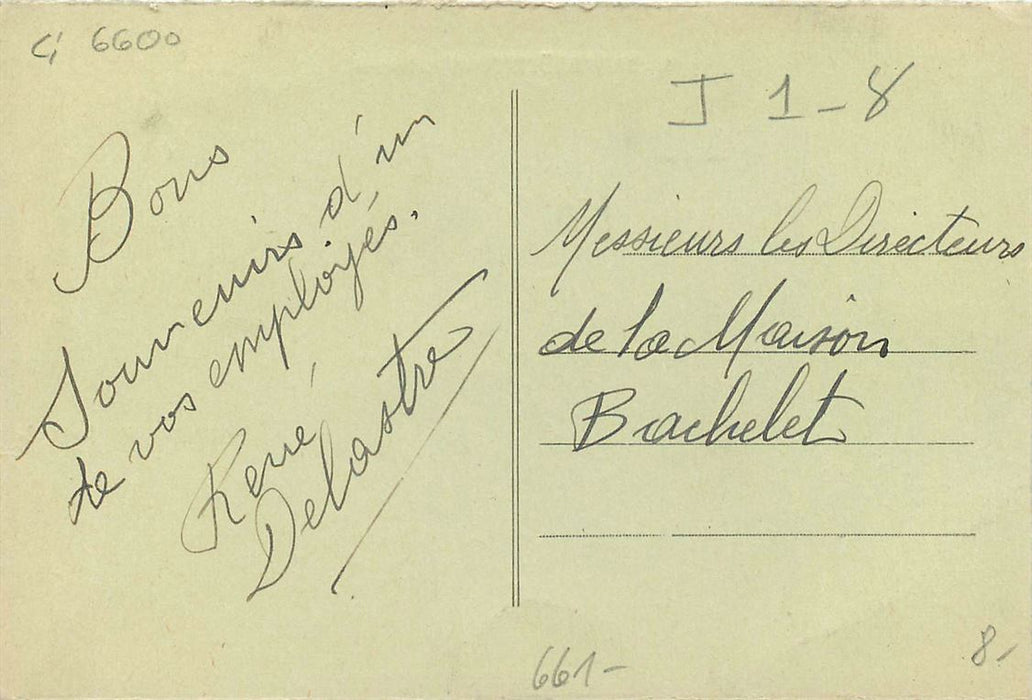 G 6600
J 1-8
Bons
Souvenirs d'un
de vos employés.
René
Delastre
Messieurs les Directeurs
de la Maison
Bachelet
661-
8.-